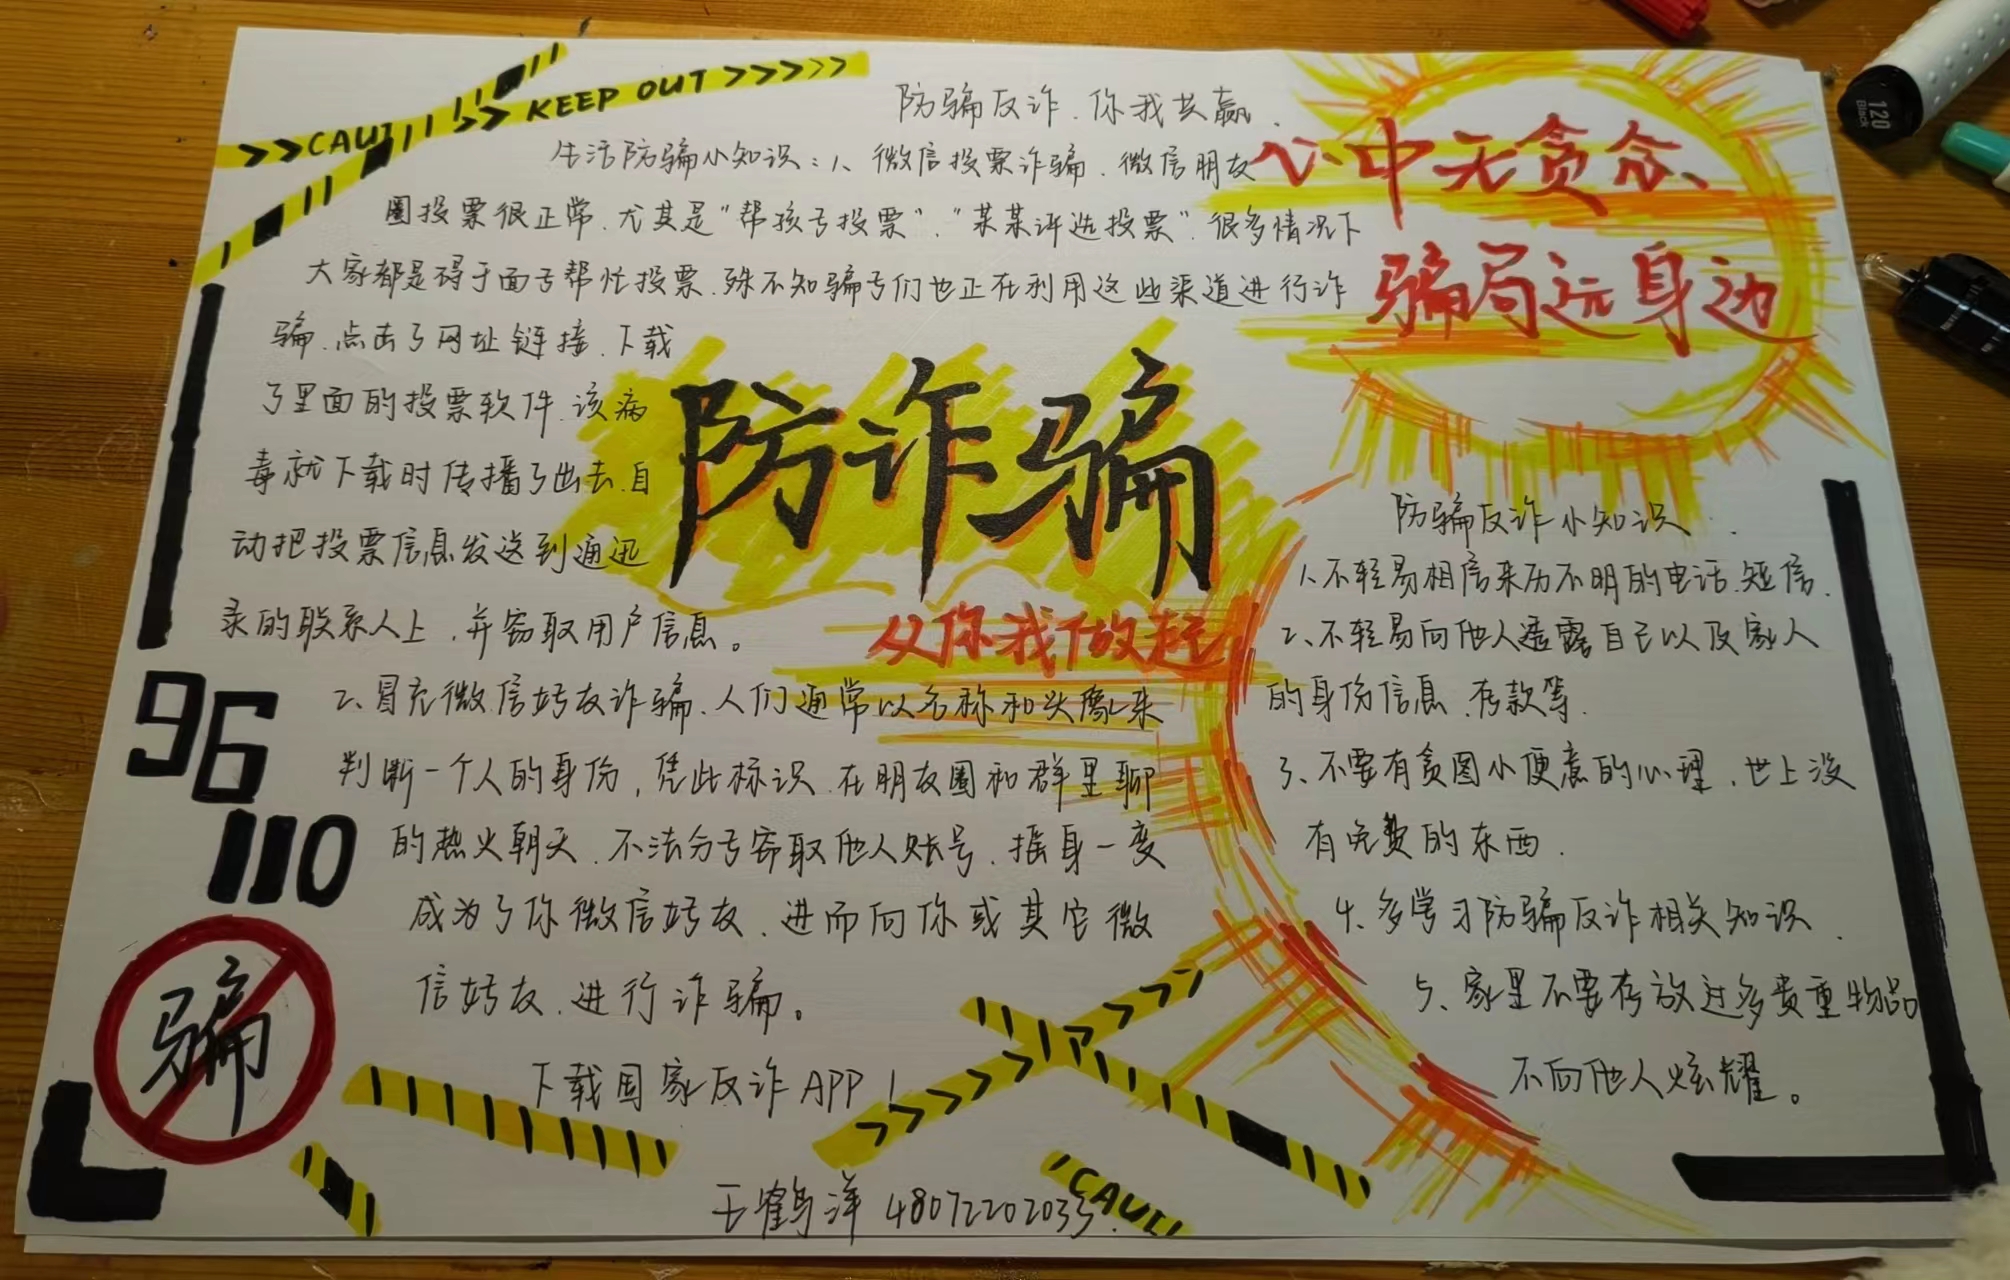 >>CAUT
>> KEEP OUT >>>>>>
防骗反诈、你我共赢、
生活防骗小知识：1、微信投票诈骗、微信朋友
圈投票很正常、尤其是“帮孩子投票”、“某某评选投票”、很多情况下
大家都是碍于面子帮忙投票、殊不知骗子们也正在利用这些渠道进行诈
骗、点击了网址链接、下载
了里面的投票软件、该病
毒就下载时传播了出去、自
动把投票信息发送到通迅
录的联系人上、并窃取用户信息。
2、冒充微信好友诈骗、人们通常以名称和头像来
判断一个人的身份，凭此标识、在朋友圈和群里聊
的热火朝天、不法分子窃取他人账号、摇身一变
成为了你微信好友、进而向你或其它微
信好友、进行诈骗。
下载国家反诈APP！
心中无贪念、
骗局远身边
防诈骗
从你我做起
防骗反诈小知识
1、不轻易相信来历不明的电话、短信、
2、不轻易向他人透露自己以及家人
的身份信息、存款等、
3、不要有贪图小便意的心理、世上没
有免费的东西、
4、多学习防骗反诈相关知识、
5、家里不要存放过多贵重物品
不向他人炫耀。
96
110
骗
>>>>>>>>
CAUT
王鹤洋 48072202033